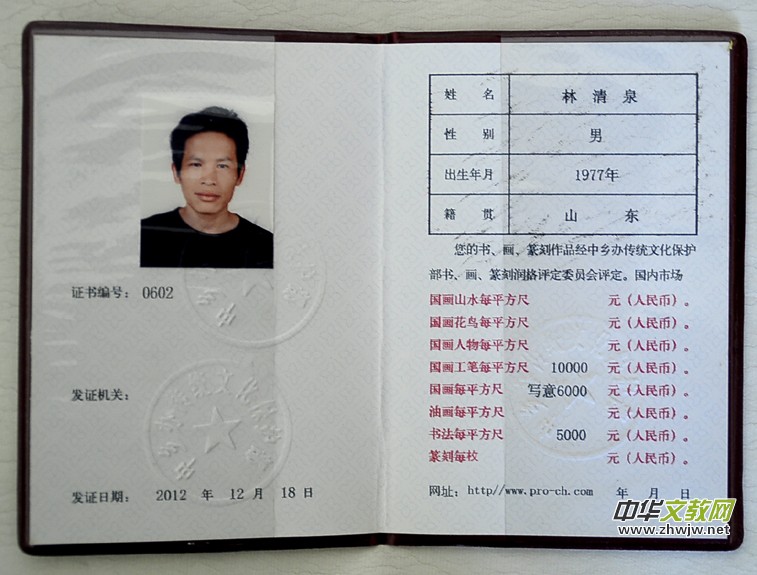 证书编号： 0602
发证机关：
发证日期： 2012 年 12 月 18 日
姓 名 林 清 泉
性 别 男
出生年月 1977年
籍 贯 山 东
您的书、画、篆刻作品经中乡办传统文化保护
部书、画、篆刻润格评定委员会评定。国内市场
国画山水每平方尺 元（人民币）。
国画花鸟每平方尺 元（人民币）。
国画人物每平方尺 元（人民币）。
国画工笔每平方尺 10000 元（人民币）。
国画每平方尺 写意6000 元（人民币）。
油画每平方尺 元（人民币）。
书法每平方尺 5000 元（人民币）。
篆刻每枚 元（人民币）。
网址：http//www.pro-ch.com 年 月 日
中华文教网
www.zhwjw.net